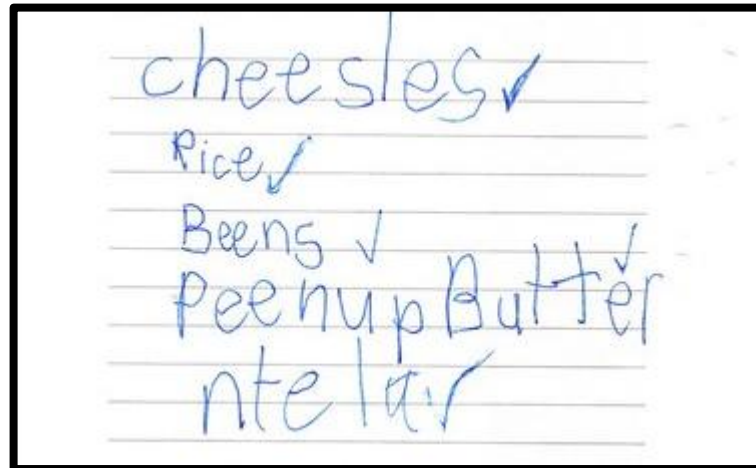 cheesles ✓
Rice ✓
Beens ✓
PeenupButter ✓
ntela ✓